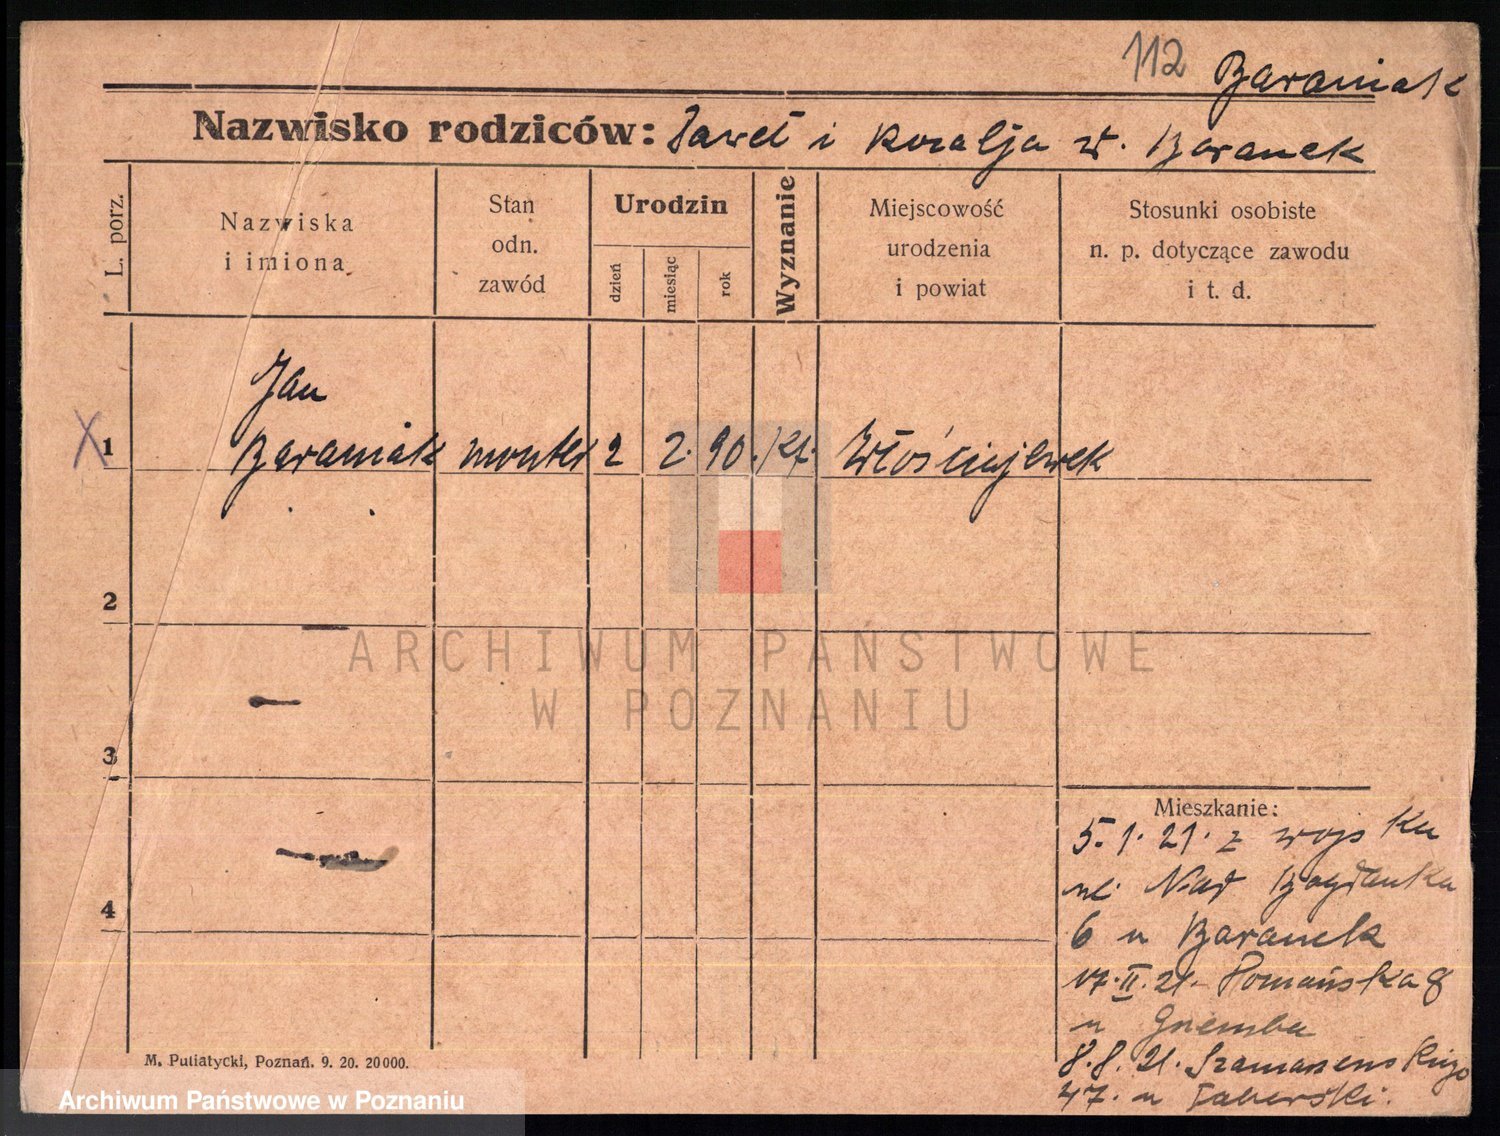 112
Baraniak
Nazwisko rodziców: Paweł i Rozalja z d. Baranek
L. porz.
Nazwiska
i imiona
Stan
odn.
zawód
Urodzin
dzień
miesiąc
rok
Wyznanie
Miejscowość
urodzenia
i powiat
Stosunki osobiste
n. p. dotyczące zawodu
i t. d.
Jan
X 1 Baraniak monter 2 2. 90. kt. Włościejewek
2
ARCHIWUM PAŃSTWOWE
W POZNANIU
3
4
Mieszkanie:
5.1.21. z wojska
ul. Nad Bogdanka
6 u Baranek
17.II.21. Poznańska 8
u Gniemba
8.8.21. Szamarzewskiego
47. u
M. Puliatycki, Poznań. 9. 20. 20000.
Archiwum Państwowe w Poznaniu